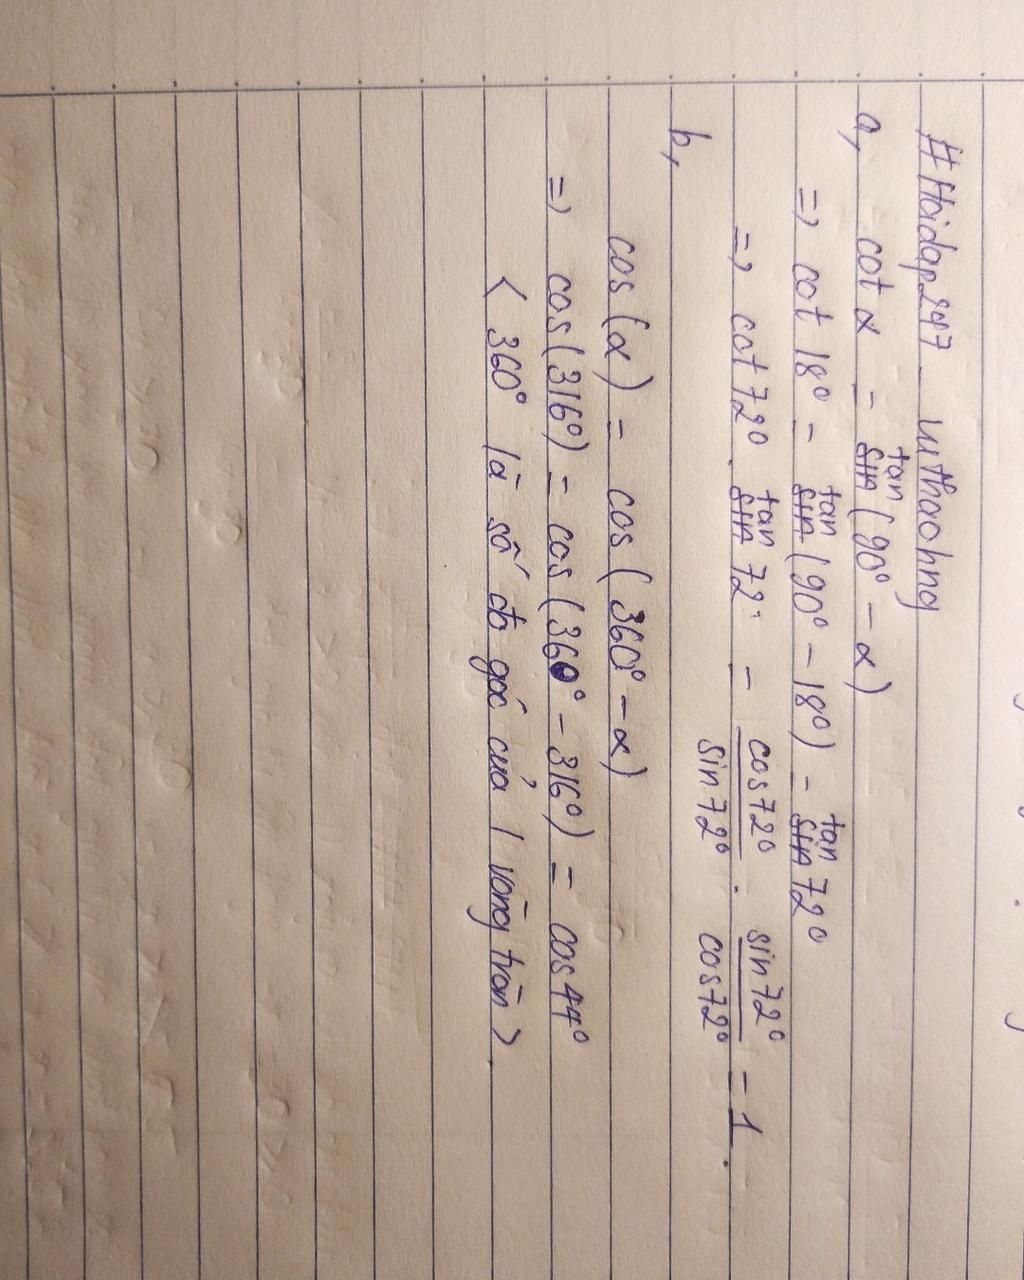 #Hoidap247 - uthaohng
a, cot α = tan (90° - α)
=> cot 18° = tan (90° - 18°) = tan 72°
=> cot 72° . tan 72° = cos72°/sin72° . sin72°/cos72° = 1.
b,
cos (α) = cos (360° - α)
=> cos (316°) = cos (360° - 316°) = cos 44°
< 360° là số đo góc của 1 vòng tròn >.